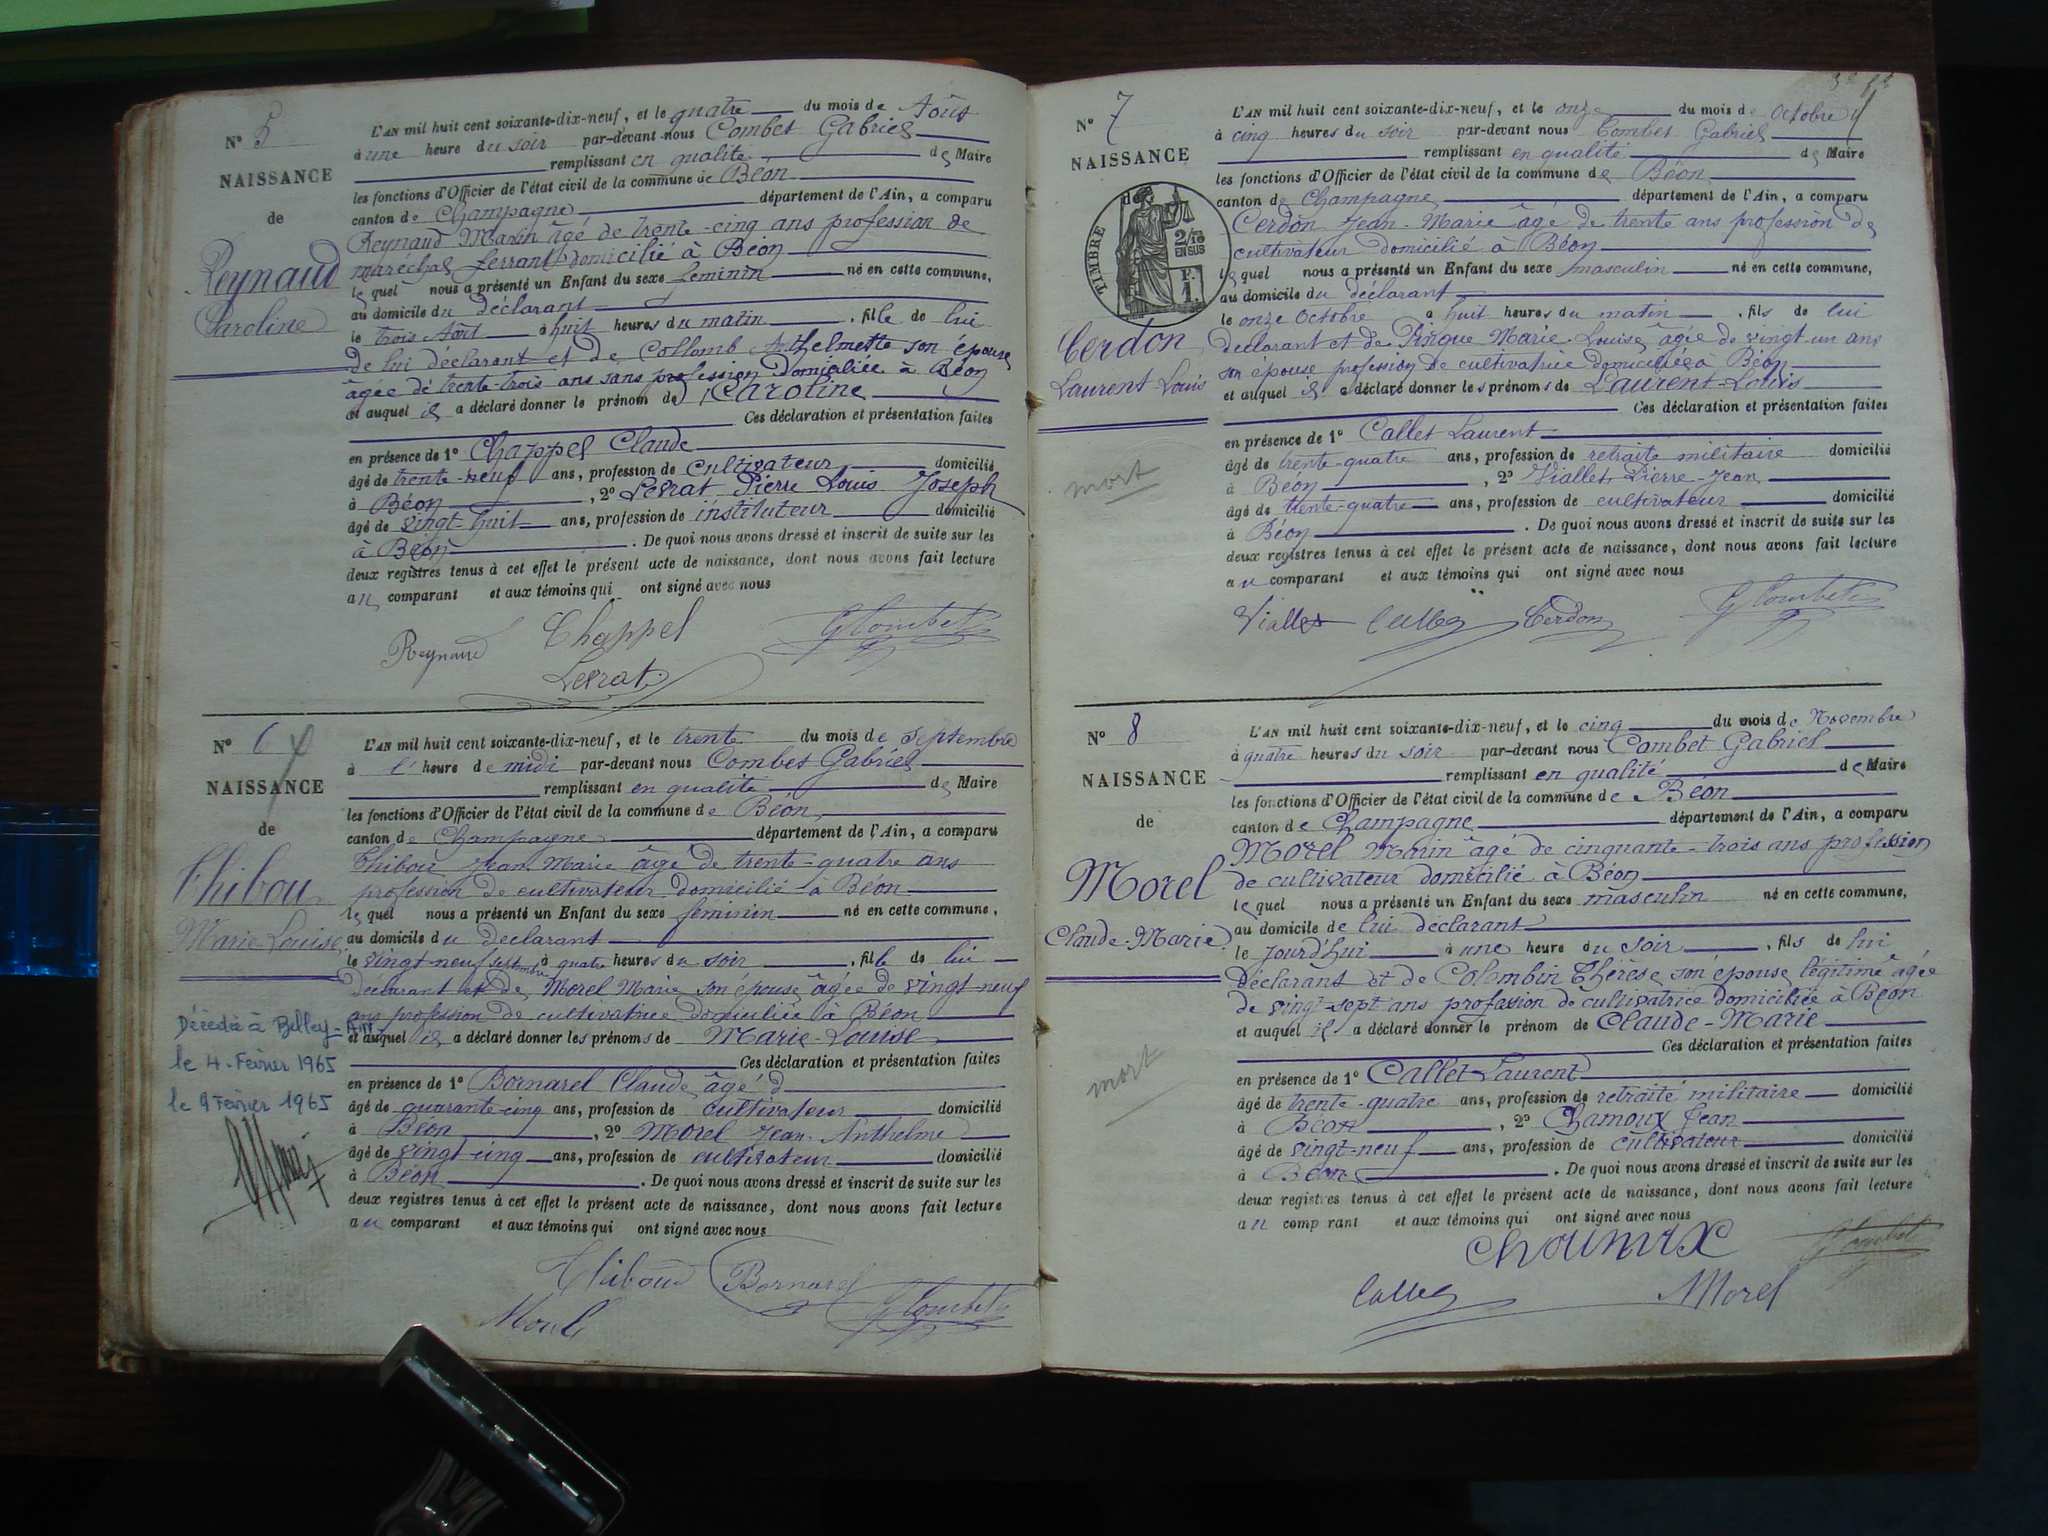 N° 5
NAISSANCE
de
Reynaud
Caroline
L'AN mil huit cent soixante-dix-neuf, et le quatre du mois de Août
à une heure du soir par-devant nous Combet Gabriel
remplissant en qualité de Maire
les fonctions d'Officier de l'état civil de la commune de Béon
canton de Champagne département de l'Ain, a comparu
Reynaud Marin âgé de trente-cinq ans profession de
maréchal ferrant domicilié à Béon
lequel nous a présenté un Enfant du sexe féminin né en cette commune,
au domicile du déclarant
le trois Août à huit heures du matin, fille de lui
de lui déclarant et de Collomb Anthelmette son épouse
âgée de trente-trois ans sans profession Domiciliée à Béon
et auquel il a déclaré donner le prénom de Caroline
Ces déclaration et présentation faites
en présence de 1° Chappel Claude
âgé de trente-neuf ans, profession de Cultivateur domicilié
à Béon, 2° Levrat Pierre Louis Joseph
âgé de vingt-huit ans, profession de instituteur domicilié
à Béon. De quoi nous avons dressé et inscrit de suite sur les
deux registres tenus à cet effet le présent acte de naissance, dont nous avons fait lecture
au comparant et aux témoins qui ont signé avec nous
Reynaud Chappel GCombet
Levrat
N° 6
NAISSANCE
de
Thibou
Marie Louise
Décédée à Belley-Ain
le 4 Février 1965
le 9 Février 1965
L'AN mil huit cent soixante-dix-neuf, et le trente du mois de septembre
à l' heure de midi par-devant nous Combet Gabriel
remplissant en qualité de Maire
les fonctions d'Officier de l'état civil de la commune de Béon
canton de Champagne département de l'Ain, a comparu
Thibou Jean Marie âgé de trente-quatre ans
profession de cultivateur domicilié à Béon
lequel nous a présenté un Enfant du sexe féminin né en cette commune,
au domicile du déclarant
le vingt-neuf septembre à quatre heures du soir, fille de lui
déclarant et de Morel Marie son épouse âgée de vingt-neuf
ans profession de cultivatrice domiciliée à Béon
et auquel il a déclaré donner les prénoms de Marie-Louise
Ces déclaration et présentation faites
en présence de 1° Bornarel Claude âgé d
âgé de quarante-cinq ans, profession de cultivateur domicilié
à Béon, 2° Morel Jean Anthelme
âgé de vingt-cinq ans, profession de cultivateur domicilié
à Béon. De quoi nous avons dressé et inscrit de suite sur les
deux registres tenus à cet effet le présent acte de naissance, dont nous avons fait lecture
au comparant et aux témoins qui ont signé avec nous
Thibou Bornarel
Morel GCombet
N° 7
NAISSANCE
de
TIMBRE
2/10
EN SUS
F.
1.
Cerdon
Laurent-Louis
mort
L'AN mil huit cent soixante-dix-neuf, et le onze du mois de Octobre
à cinq heures du soir par-devant nous Combet Gabriel
remplissant en qualité de Maire
les fonctions d'Officier de l'état civil de la commune de Béon
canton de Champagne département de l'Ain, a comparu
Cerdon Jean-Marie âgé de trente ans profession de
cultivateur domicilié à Béon
lequel nous a présenté un Enfant du sexe masculin né en cette commune,
au domicile du déclarant
le onze Octobre à huit heures du matin, fils de lui
déclarant et de Marie Louise âgée de vingt-un ans
son épouse profession de cultivatrice domiciliée à Béon
et auquel il a déclaré donner les prénoms de Laurent-Louis
Ces déclaration et présentation faites
en présence de 1° Callet Laurent
âgé de trente-quatre ans, profession de retraité militaire domicilié
à Béon, 2° Viallet Pierre-Jean
âgé de trente-quatre ans, profession de cultivateur domicilié
à Béon. De quoi nous avons dressé et inscrit de suite sur les
deux registres tenus à cet effet le présent acte de naissance, dont nous avons fait lecture
au comparant et aux témoins qui ont signé avec nous
Viallet Callet Cerdon GCombet
N° 8
NAISSANCE
de
Morel
Claude-Marie
mort
L'AN mil huit cent soixante-dix-neuf, et le cinq du mois de Novembre
à quatre heures du soir par-devant nous Combet Gabriel
remplissant en qualité de Maire
les fonctions d'Officier de l'état civil de la commune de Béon
canton de Champagne département de l'Ain, a comparu
Morel Marin âgé de cinquante-trois ans profession
de cultivateur domicilié à Béon
lequel nous a présenté un Enfant du sexe masculin né en cette commune,
au domicile de lui déclarant
le jourd'hui à une heure du soir, fils de lui
Déclarant et de Colombin Thérèse son épouse légitime âgée
de vingt-sept ans profession de cultivatrice domiciliée à Béon
et auquel il a déclaré donner le prénom de Claude-Marie
Ces déclaration et présentation faites
en présence de 1° Callet Laurent
âgé de trente-quatre ans, profession de retraité militaire domicilié
à Béon, 2° Chamoux Jean
âgé de vingt-neuf ans, profession de cultivateur domicilié
à Béon. De quoi nous avons dressé et inscrit de suite sur les
deux registres tenus à cet effet le présent acte de naissance, dont nous avons fait lecture
au comp rant et aux témoins qui ont signé avec nous
GCombet
Callet Morel